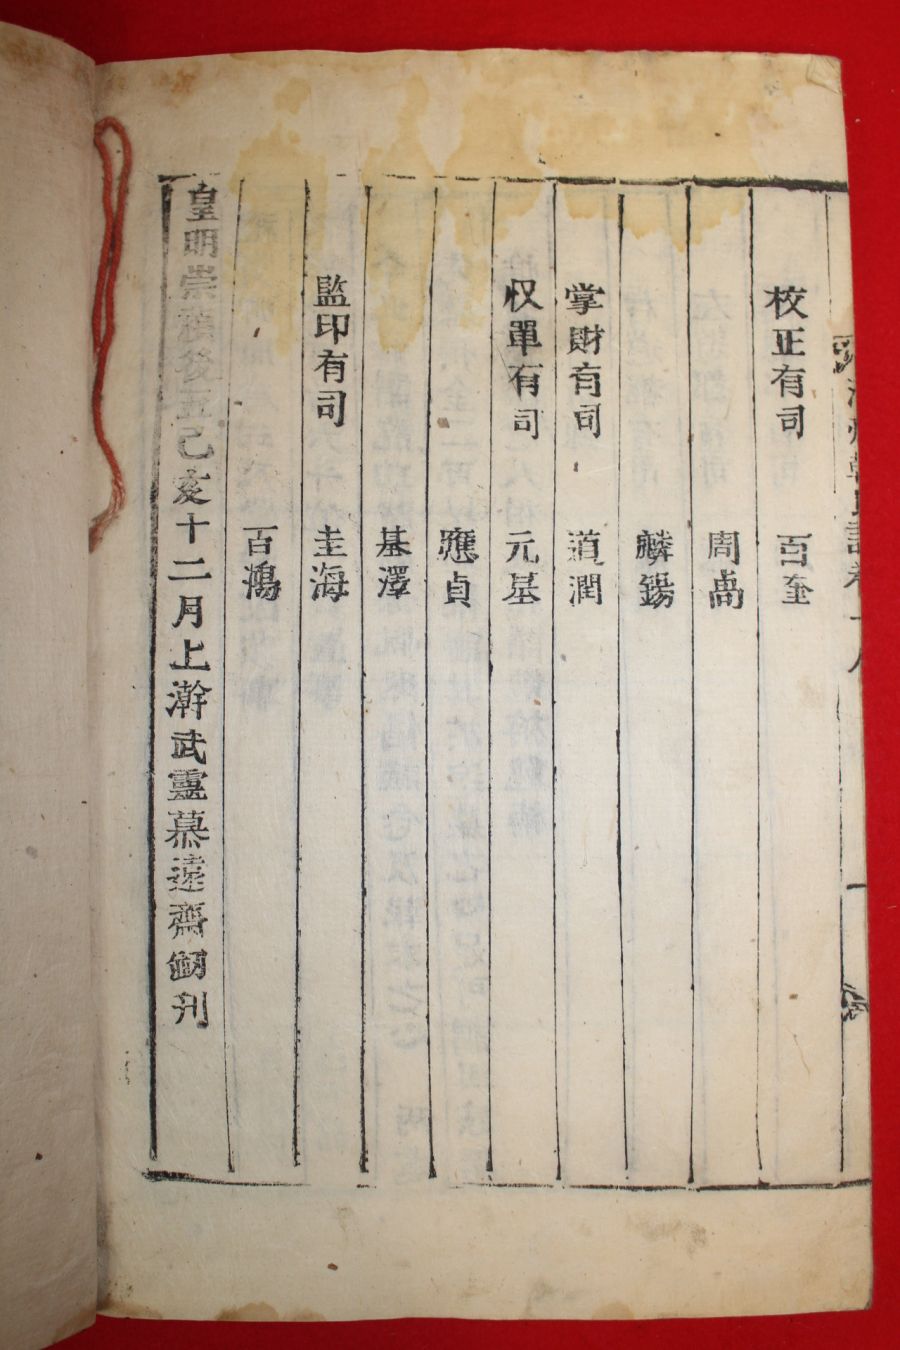 淸州韓氏譜卷十八
一
校正有司　百奎
周卨
麟錫
掌財有司　道潤
収單有司　元基
應貞
基澤
監印有司　圭海
百鴻
皇明崇禎後五己亥十二月上澣武靈慕遠齋刱刊